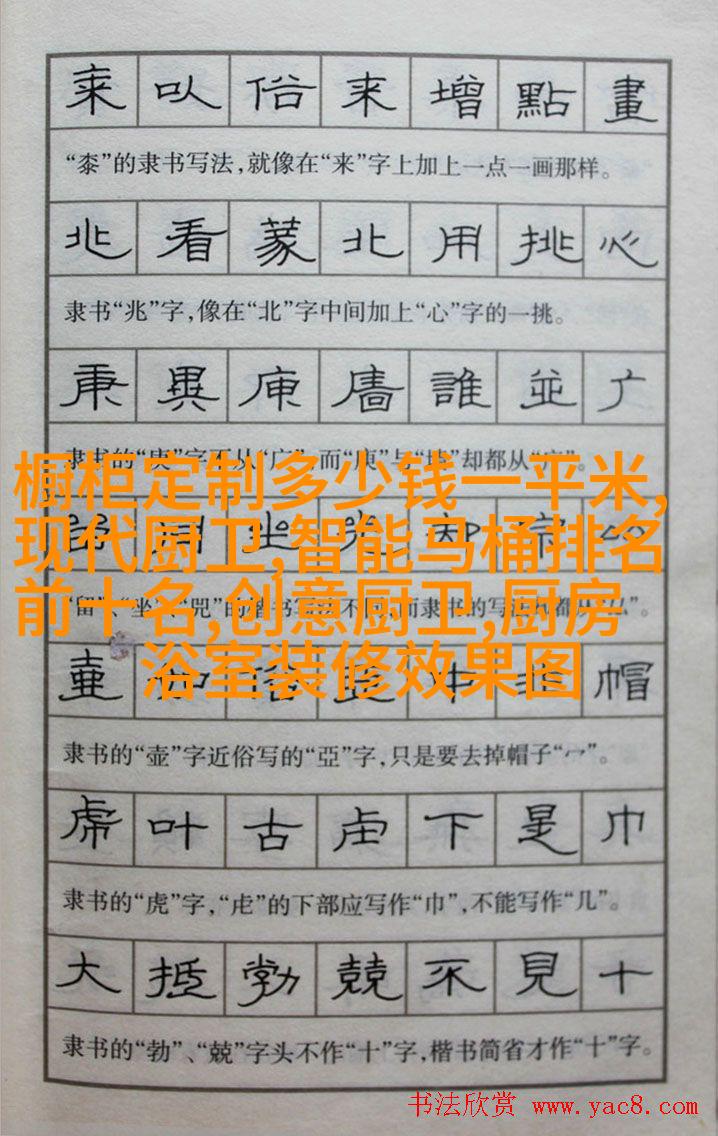 来 以 俗 来 增 點 畫
“桼”的隶书写法，就像在“来”字上加上一点一画那样。
兆 看 蒙 北 用 挑 心
隶书“兆”字，像在“北”字中间加上“心”字的一挑。
庚 異 庳 廧 誰 並 广
隶书的“庚”字不从“广”，而“庳”与“廧”却都从“广”。
橱柜定制多少钱一平米,
现代厨卫,智能马桶排名
前十名,创意厨卫,厨房
浴室装修效果图
“留”、“坐”、“咒”的楷书写法不同，而隶书的写法九都从“厸”。
隶书的“壶”字近俗写的“亞”字，只是要去掉帽子“冖”。
虎 叶 古 虍 下 是 巾
隶书的“虎”字，“虍”的下部应写作“巾”，不能写作“几”。
大 抵 勃 兢 不 見 十
隶书的“勃”、“兢”字头不作“十”字，楷书简省才作“十”字。
书法欣赏 www.yac8.com